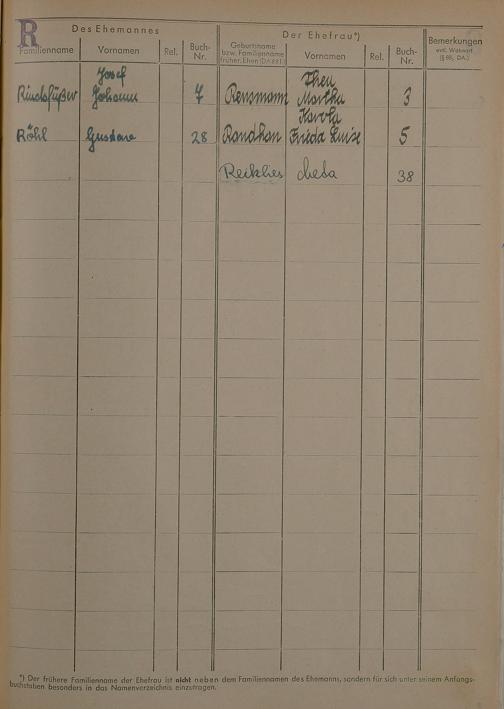 R
Des Ehemannes
Der Ehefrau*)
Familienname
Vornamen
Rel.
Buch-
Nr.
Geburtsname
bzw. Familienname
früher. Ehen (DA § 81)
Vornamen
Rel.
Buch-
Nr.
Bemerkungen
Josef
Johann
7
Rensmann
Thea
Martha
3
Röhl
Gustav
28
Karola
Frieda Luise
5
38
*) Der frühere Familienname der Ehefrau ist nicht neben dem Familiennamen des Ehemanns, sondern für sich unter seinem Anfangs-
buchstaben besonders in das Namenverzeichnis einzutragen.